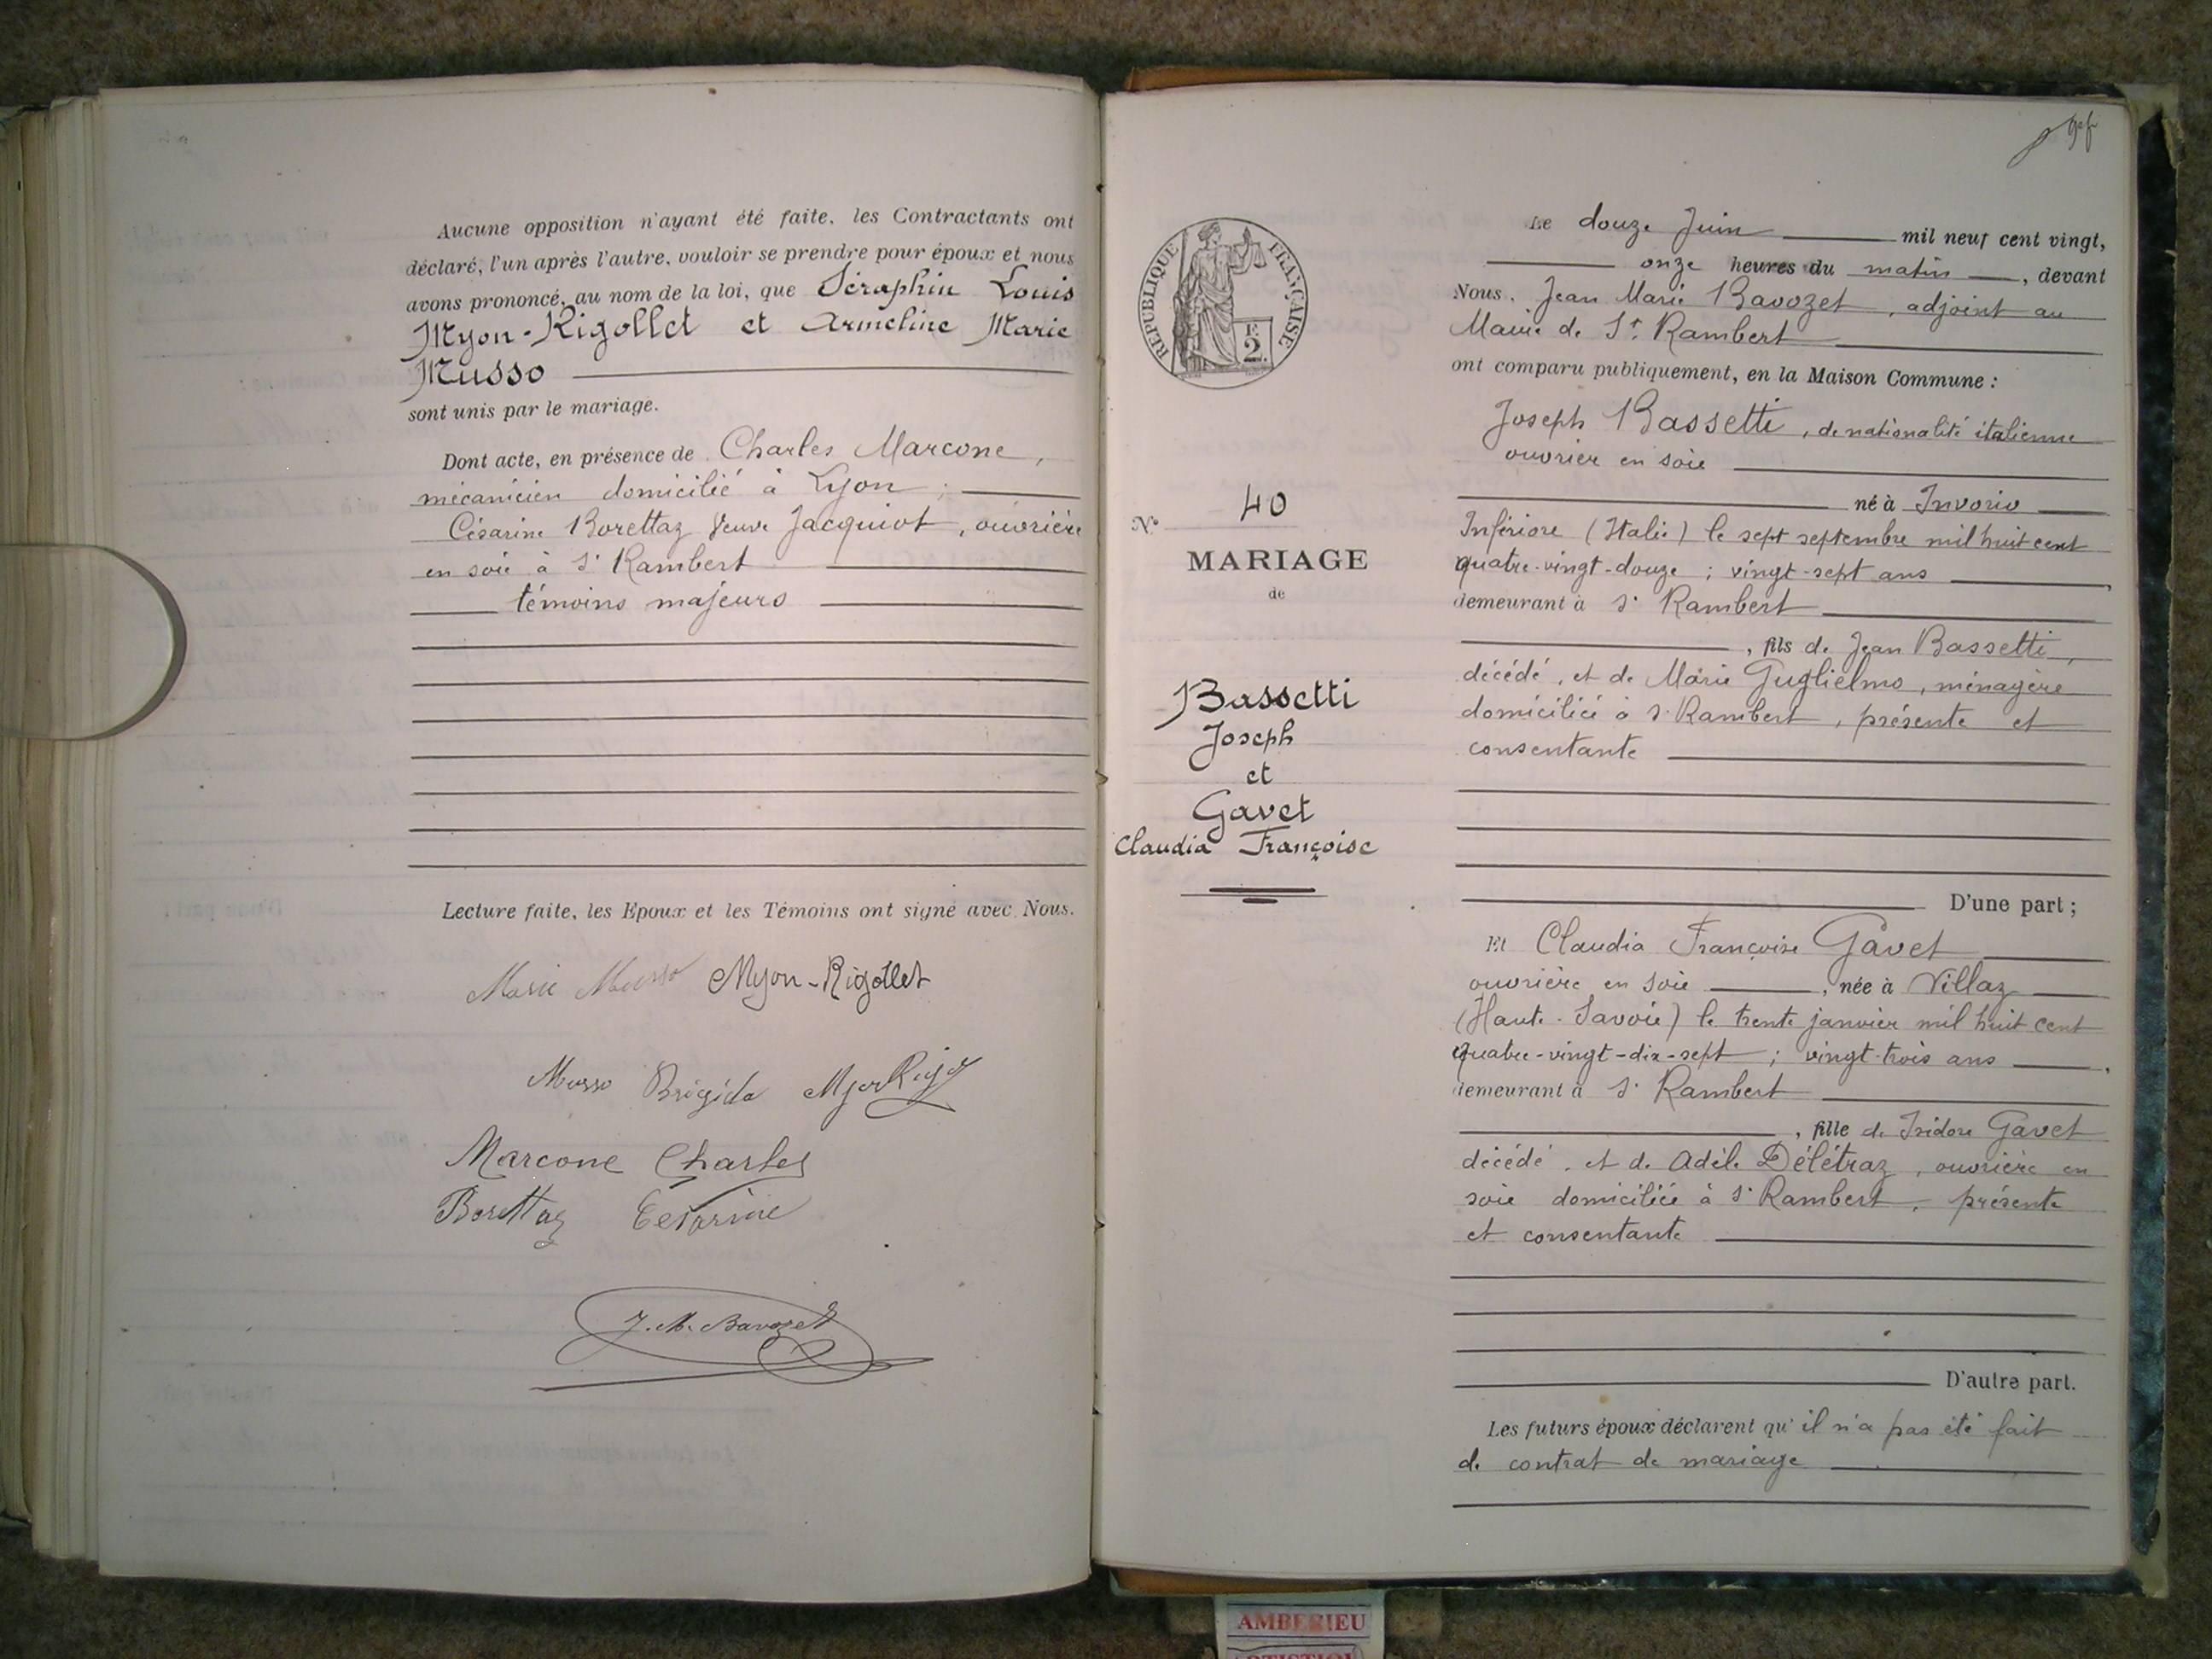 Aucune opposition n'ayant été faite, les Contractants ont
déclaré, l'un après l'autre, vouloir se prendre pour époux et nous
avons prononcé, au nom de la loi, que Séraphin Louis
Myon-Rigollet et Armeline Marie
Musso
sont unis par le mariage.
Dont acte, en présence de Charles Marcone,
mécanicien domicilié à Lyon ;
Césarine Borettaz Veuve Jacquiot, ouvrière
en soie à St Rambert
témoins majeurs
Lecture faite, les Epoux et les Témoins ont signé avec Nous.
Marie Musso Myon-Rigollet
Musso Brigida
Marcone Charles
Borettaz Césarine
J. M. Bavozet
RÉPUBLIQUE FRANÇAISE
F.
2.
N° 40
MARIAGE
de
Bassetti
Joseph
et
Gavet
Claudia Françoise
Le douze Juin mil neuf cent vingt,
onze heures du matin, devant
Nous, Jean Marie Bavozet, adjoint au
Maire de St Rambert
ont comparu publiquement, en la Maison Commune :
Joseph Bassetti, de nationalité italienne
ouvrier en soie
né à Invorio
Inferiore (Italie) le sept septembre mil huit cent
quatre-vingt-douze ; vingt-sept ans,
demeurant à St Rambert
, fils de Jean Bassetti,
décédé, et de Marie Guglielmo, ménagère
domiciliée à St Rambert, présente et
consentante
D'une part ;
Et Claudia Françoise Gavet
ouvrière en soie, née à Villaz
(Haute-Savoie) le trente janvier mil huit cent
quatre-vingt-dix-sept ; vingt-trois ans,
demeurant à St Rambert
, fille de Isidore Gavet
décédé, et de Adèle Délétraz, ouvrière en
soie domiciliée à St Rambert, présente
et consentante
D'autre part.
Les futurs époux déclarent qu'il n'a pas été fait
de contrat de mariage
AMBERIEU